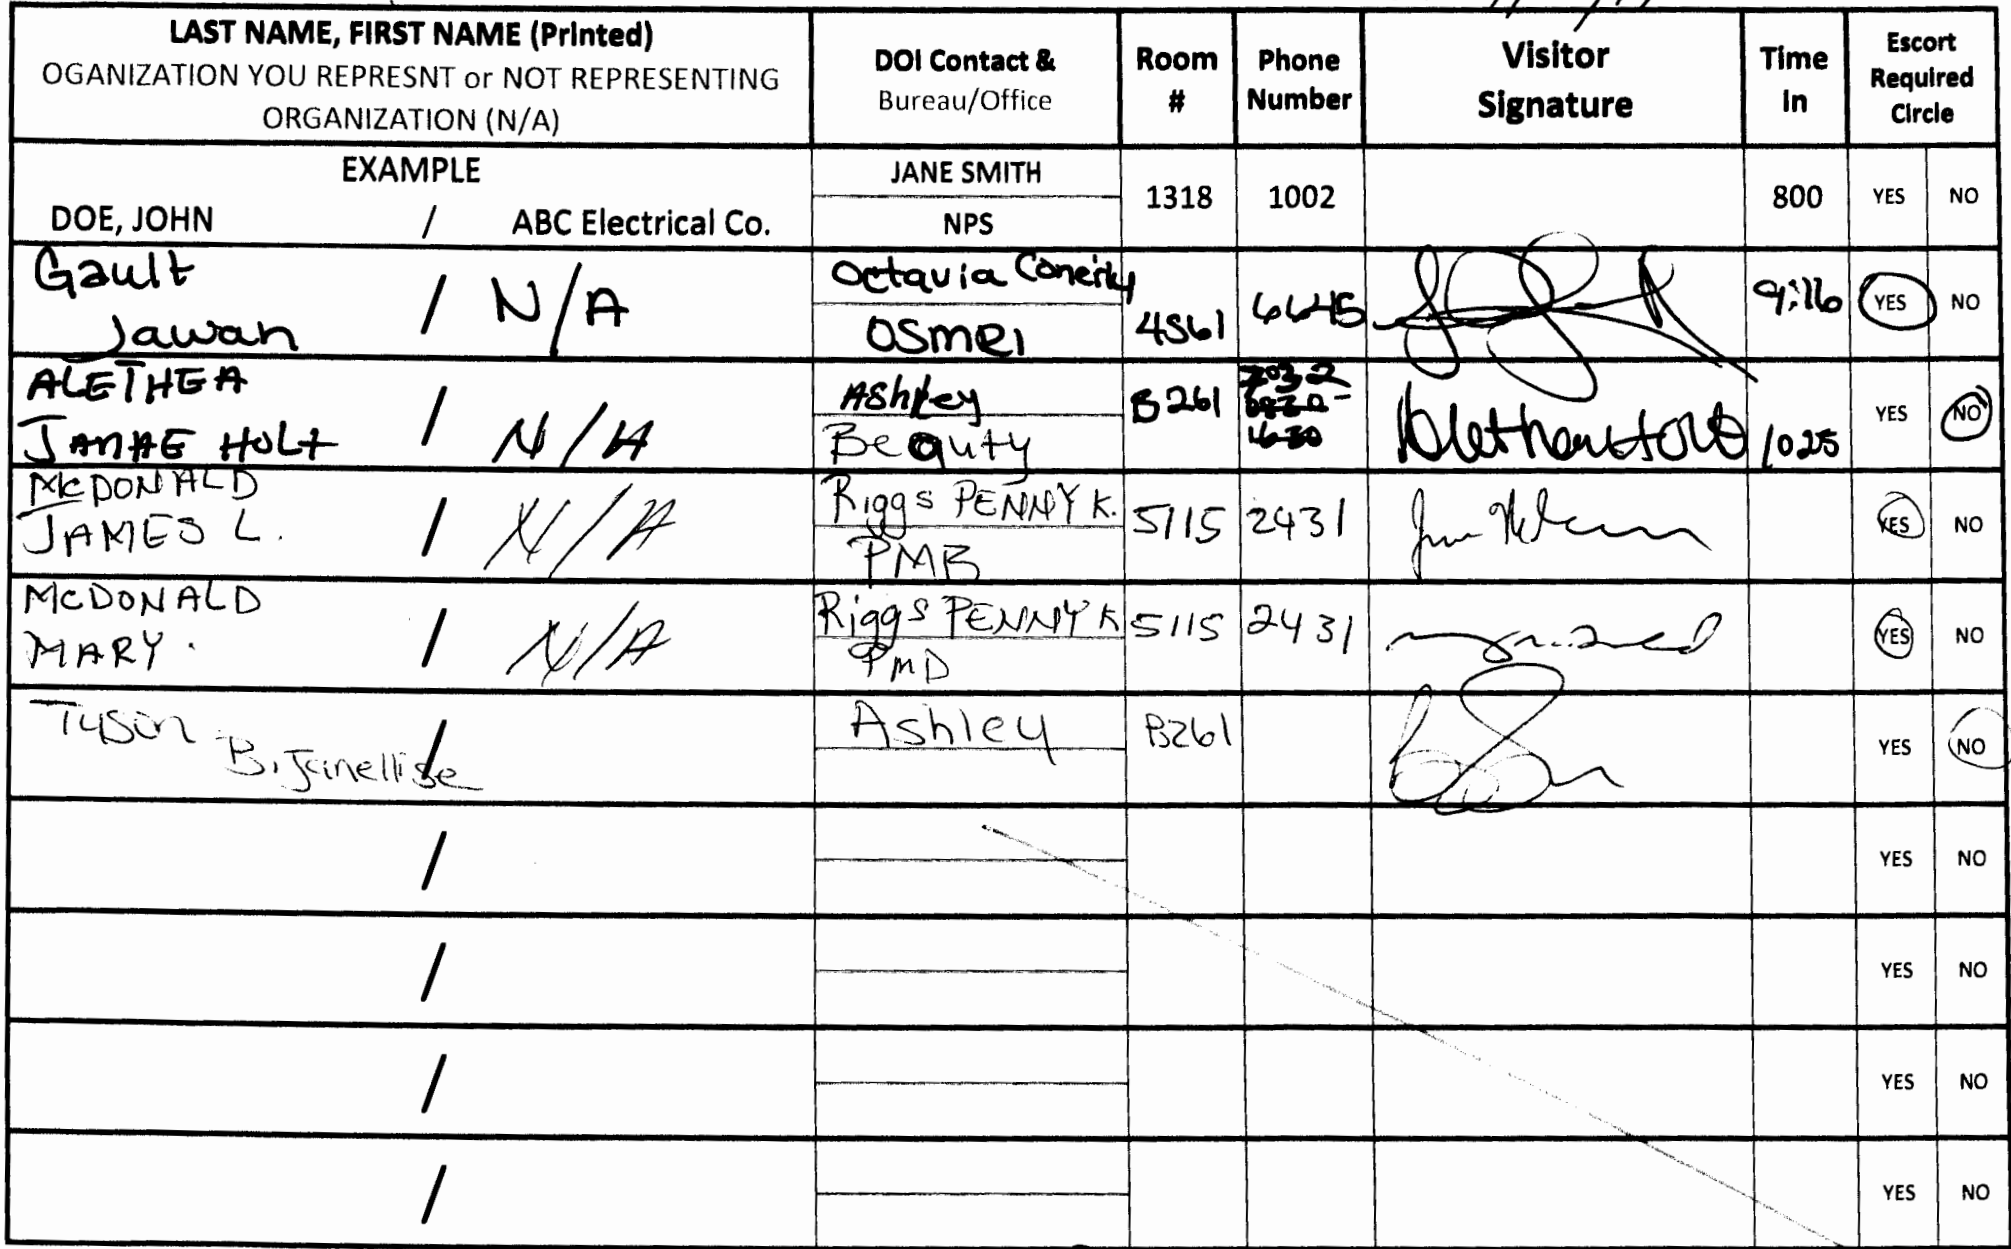 LAST NAME, FIRST NAME (Printed)
OGANIZATION YOU REPRESNT or NOT REPRESENTING
ORGANIZATION (N/A)
DOI Contact &
Bureau/Office
Room
#
Phone
Number
Visitor
Signature
Time
In
Escort
Required
Circle
EXAMPLE
DOE, JOHN / ABC Electrical Co.
JANE SMITH
NPS
1318
1002
800
YES
NO
Gault
Jawan
/ N/A
Octavia
OSMRI
4561
6645
9:16
YES
NO
ALETHEA
JANAE HOLT
/ N/A
Ashley
Beauty
B261
1025
YES
NO
MCDONALD
JAMES L.
/ N/A
Riggs PENNY K.
PMB
5115
2431
YES
NO
MCDONALD
MARY
/ N/A
Riggs PENNY K
PMD
5115
2431
YES
NO
Tyson
B. Janellise
/
Ashley
B261
YES
NO
/
YES
NO
/
YES
NO
/
YES
NO
/
YES
NO